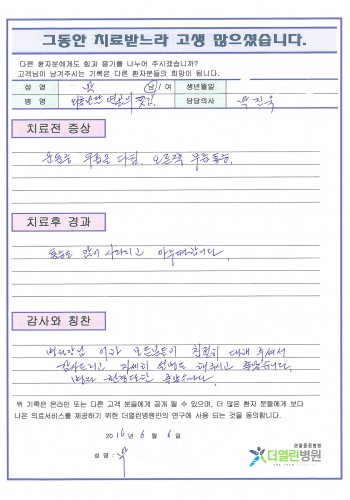 그동안 치료받느라 고생 많으셨습니다.
다른 환자분에게도 힘과 용기를 나누어 주시겠습니까?
고객님이 남겨주시는 기록은 다른 환자분들의 희망이 됩니다.
성 명 박 남 / 여 생년월일
병 명 연골의 찢김 담당의사 박진욱
치료전 증상
운동중 무릎을 다침. 오른쪽 무릎통증.
치료후 경과
통증도 많이 사라지고 아주 편합니다.
감사와 칭찬
병원장님 이하 모든분들이 친절히 대해 주셔서
감사드리고 자세히 설명도 해주시고 좋았습니다.
좋았습니다.
위 기록은 온라인 또는 다른 고객 분들에게 공개 될 수 있으며, 더 많은 환자 분들에게 보다
나은 의료서비스를 제공하기 위한 더열린병원만의 연구에 사용 되는 것을 동의합니다.
2016년 6월 6일
성 명 : 박
관절중점병원
더열린병원